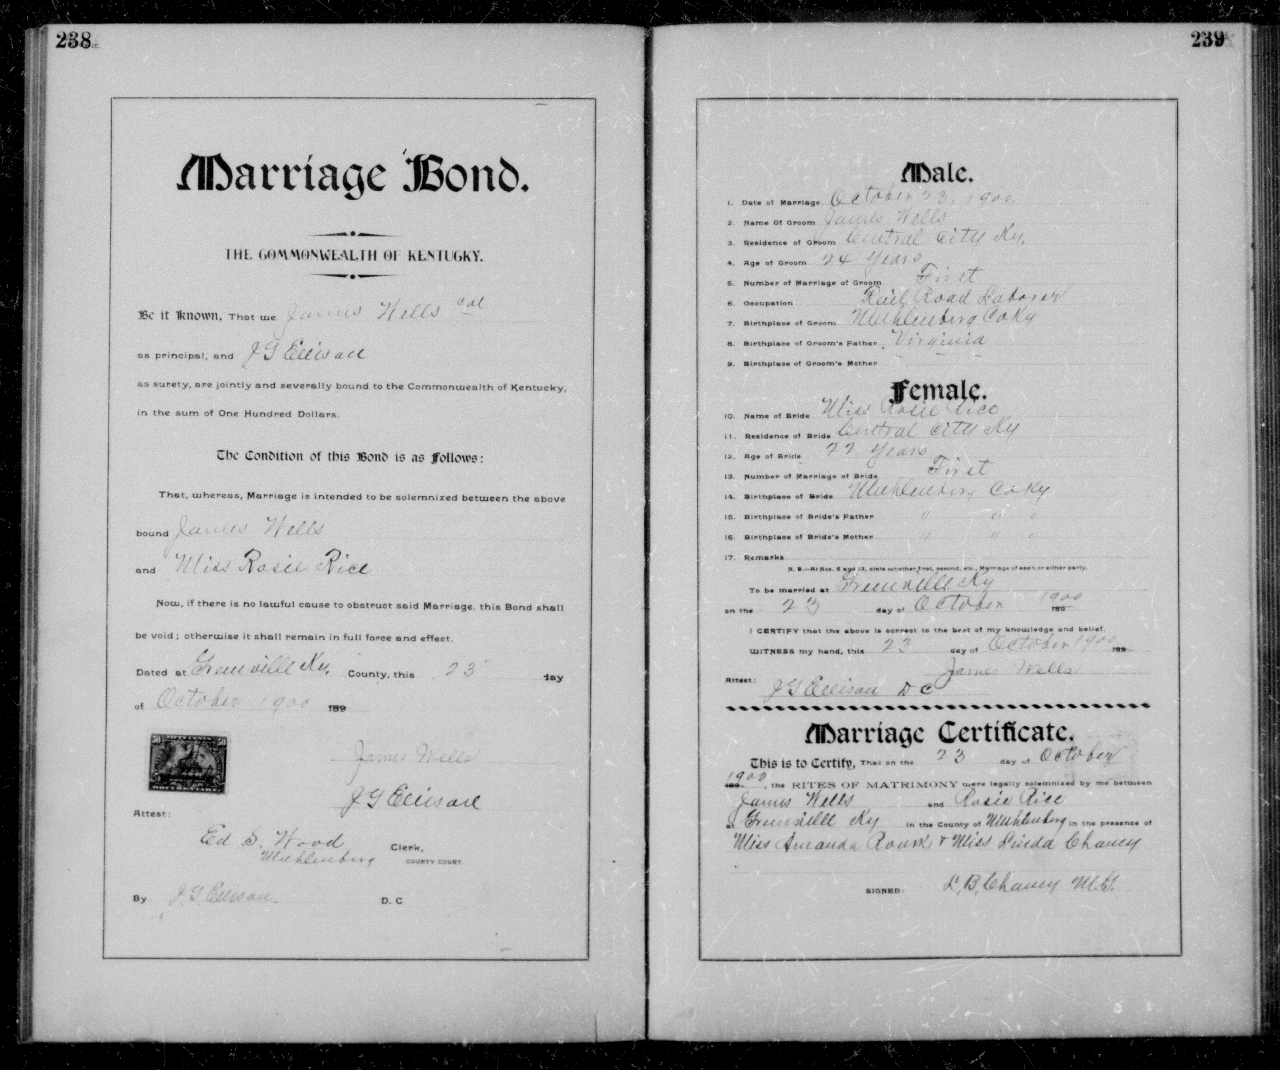 238
Marriage Bond.
THE COMMONWEALTH OF KENTUCKY.
Be it Known, That we James Wells col
as principal, and J G Ellison
as surety, are jointly and severally bound to the Commonwealth of Kentucky,
in the sum of One Hundred Dollars.
The Condition of this Bond is as Follows:
That, whereas, Marriage is intended to be solemnized between the above
bound James Wells
and Miss Rosie Rice
Now, if there is no lawful cause to obstruct said Marriage, this Bond shall
be void; otherwise it shall remain in full force and effect.
Dated at Greenville Ky. County, this 23 day
of October 1900 189
50 50
DOCUMENTARY
James Wells
J G Ellison
Attest:
Ed S. Wood Clerk,
Muhlenberg COUNTY COURT.
By J. G. Ellison D. C
239
Male.
1. Date of Marriage October 23, 1900.
2. Name Of Groom James Wells
3. Residence of Groom Central City Ky.
4. Age of Groom 24 Years
5. Number of Marriage of Groom First
6. Occupation Rail Road Laborer
7. Birthplace of Groom Muhlenberg Co Ky
8. Birthplace of Groom's Father Virginia
9. Birthplace of Groom's Mother
Female.
10. Name of Bride Miss Rosie Rice
11. Residence of Bride Central City Ky
12. Age of Bride 22 Years
13. Number of Marriage of Bride First
14. Birthplace of Bride Muhlenberg Co Ky
15. Birthplace of Bride's Father " " "
16. Birthplace of Bride's Mother " " "
17. Remarks
N. B.—At Nos. 5 and 13, state whether first, second, etc., Marriage of each or either party.
To be married at Greenville Ky
on the 23 day of October 1900 189
I CERTIFY that the above is correct to the best of my knowledge and belief.
WITNESS my hand, this 23 day of October 1900 189
James Wells
Attest: J G Ellison D C
Marriage Certificate.
This is to Certify, That on the 23 day of October
1900 189 , the RITES OF MATRIMONY were legally solemnized by me between
James Wells and Rosie Rice
at Greenville Ky in the County of Muhlenberg in the presence of
Miss Amanda & Miss Linda Chaney
SIGNED: L. B. Chaney M. G.